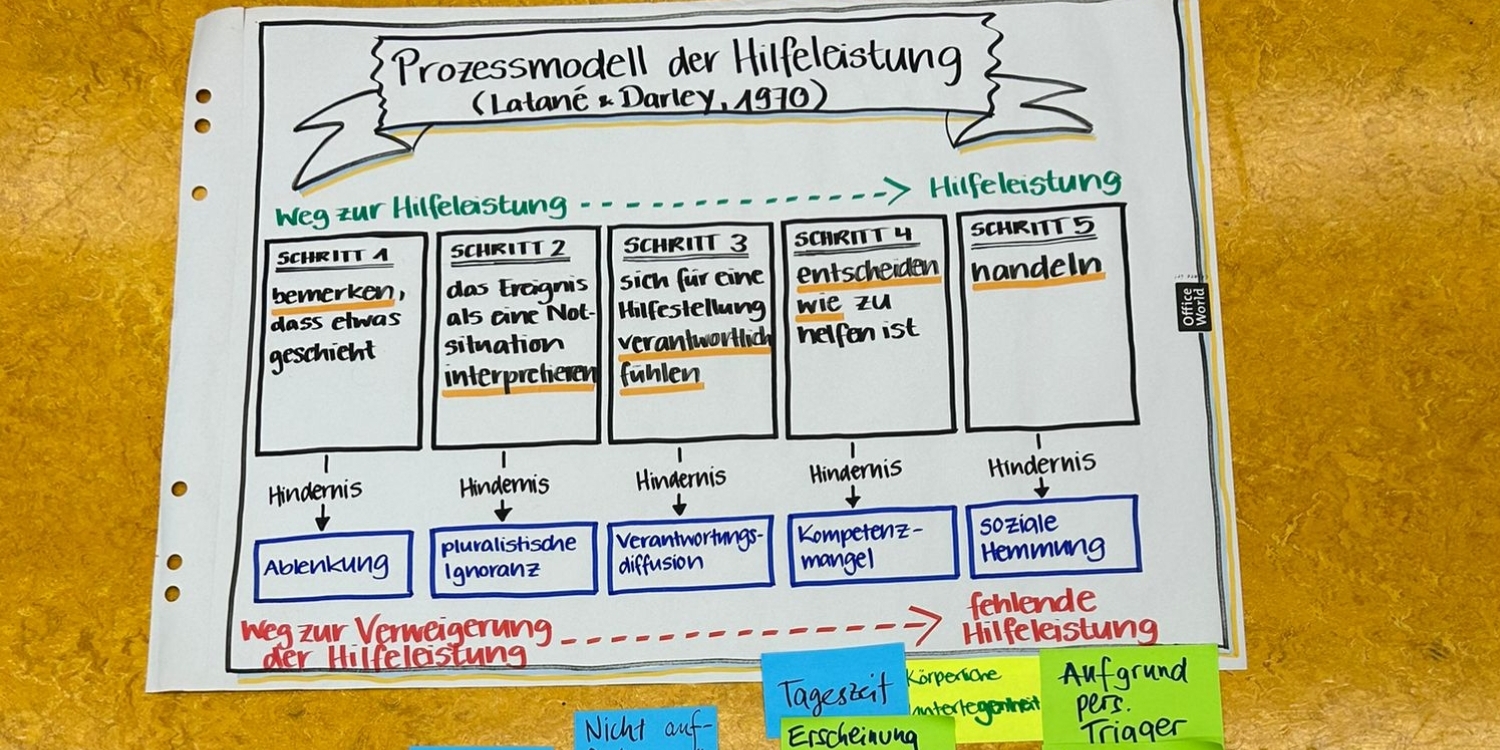 Prozessmodell der Hilfeleistung
(Latané & Darley, 1970)
Weg zur Hilfeleistung
Hilfeleistung
SCHRITT 1
bemerken,
dass etwas
geschieht
SCHRITT 2
das Ereignis
als eine Not-
situation
interpretieren
SCHRITT 3
sich für eine
Hilfestellung
verantwortlich
fühlen
SCHRITT 4
entscheiden
wie zu
helfen ist
SCHRITT 5
handeln
Hindernis
Hindernis
Hindernis
Hindernis
Hindernis
Ablenkung
pluralistische
Ignoranz
Verantwortungs-
diffusion
Kompetenz-
mangel
soziale
Hemmung
Weg zur Verweigerung
der Hilfeleistung
fehlende
Hilfeleistung
Office
World
Tageszeit
Körperliche
unterlegenheit
Aufgrund
pers.
Triager
Nicht auf-
Erscheinung